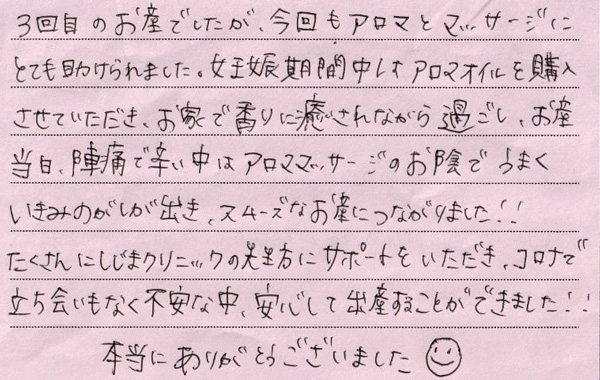 3回目のお産でしたが、今回もアロマとマッサージに
とても助けられました。妊娠期間中はアロマオイルを購入
させていただき、お家で香りに癒されながら過ごし、お産
当日、陣痛で辛い中はアロママッサージのお陰でうまく
いきみのがしが出き、スムーズなお産につながりました!!
たくさんにしじまクリニックの先生方にサポートをいただき、コロナで
立ち会いもなく不安な中、安心して出産することができました!!
本当にありがとうございました